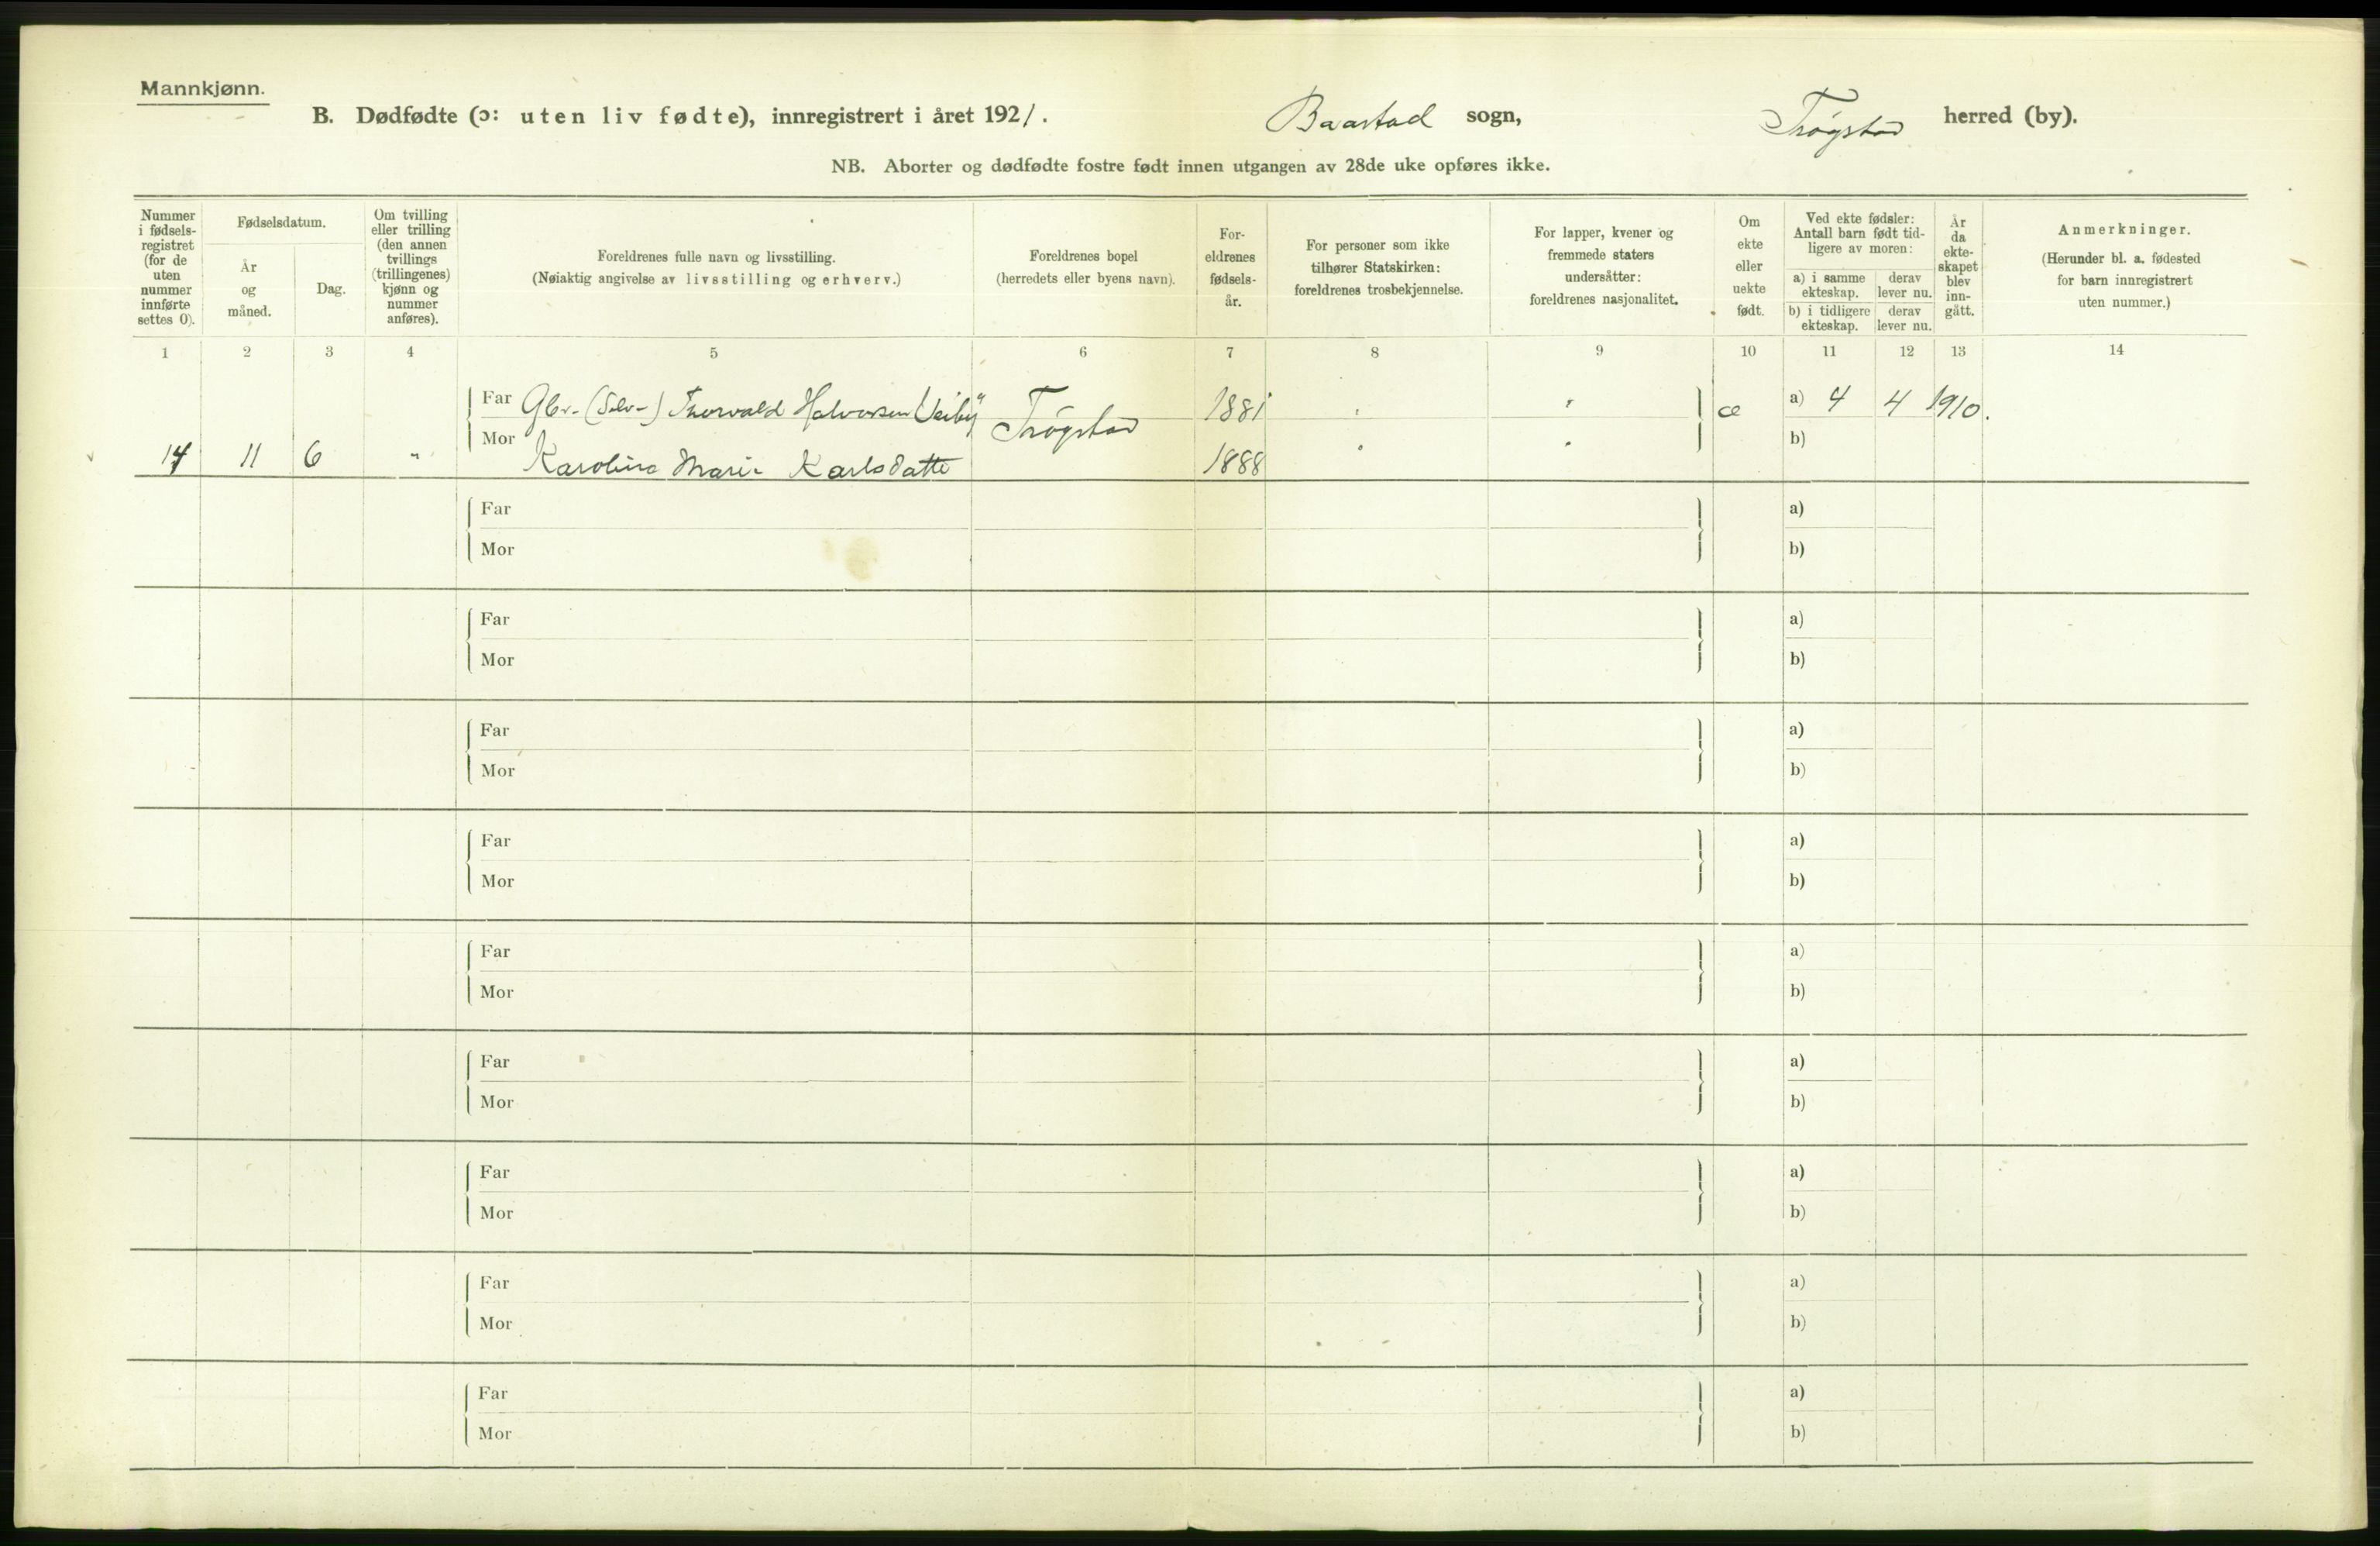 Mannkjønn.
B. Dødfødte (ɔ: uten liv fødte), innregistrert i året 1921. Baastad sogn, Trøgstad herred (by).
NB. Aborter og dødfødte fostre født innen utgangen av 28de uke opføres ikke.
Nummer i fødsels- registret (for de uten nummer innførte settes 0).
Fødselsdatum.
År og måned.
Dag.
Om tvilling eller trilling (den annen tvillings (trillingenes) kjønn og nummer anføres).
Foreldrenes fulle navn og livsstilling.
(Nøiaktig angivelse av livsstilling og erhverv.)
Foreldrenes bopel
(herredets eller byens navn).
For- eldrenes fødsels- år.
For personer som ikke tilhører Statskirken: foreldrenes trosbekjennelse.
For lapper, kvener og fremmede staters undersåtter: foreldrenes nasjonalitet.
Om ekte eller uekte født.
Ved ekte fødsler: Antall barn født tid- ligere av moren:
a) i samme ekteskap.
derav lever nu.
b) i tidligere ekteskap.
derav lever nu.
År da ekte- skapet blev inn- gått.
Anmerkninger.
(Herunder bl. a. fødested for barn innregistrert uten nummer.)
1 2 3 4 5 6 7 8 9 10 11 12 13 14
Far Gbr. (Selv-) Thorvald Halvorsen Veiby Trøgstad 1881 " " æ a) 4 4 1910.
Mor " " b)
14 11 6 " Karoline Marie Karlsdatte 1888
Far a)
Mor b)
Far a)
Mor b)
Far a)
Mor b)
Far a)
Mor b)
Far a)
Mor b)
Far a)
Mor b)
Far a)
Mor b)
Far a)
Mor b)
Far a)
Mor b)